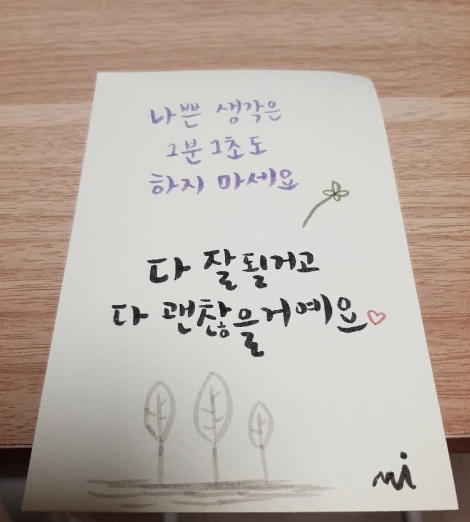 나쁜 생각은
1분 1초도
하지 마세요
다 잘될거고
다 괜찮을거예요
mi